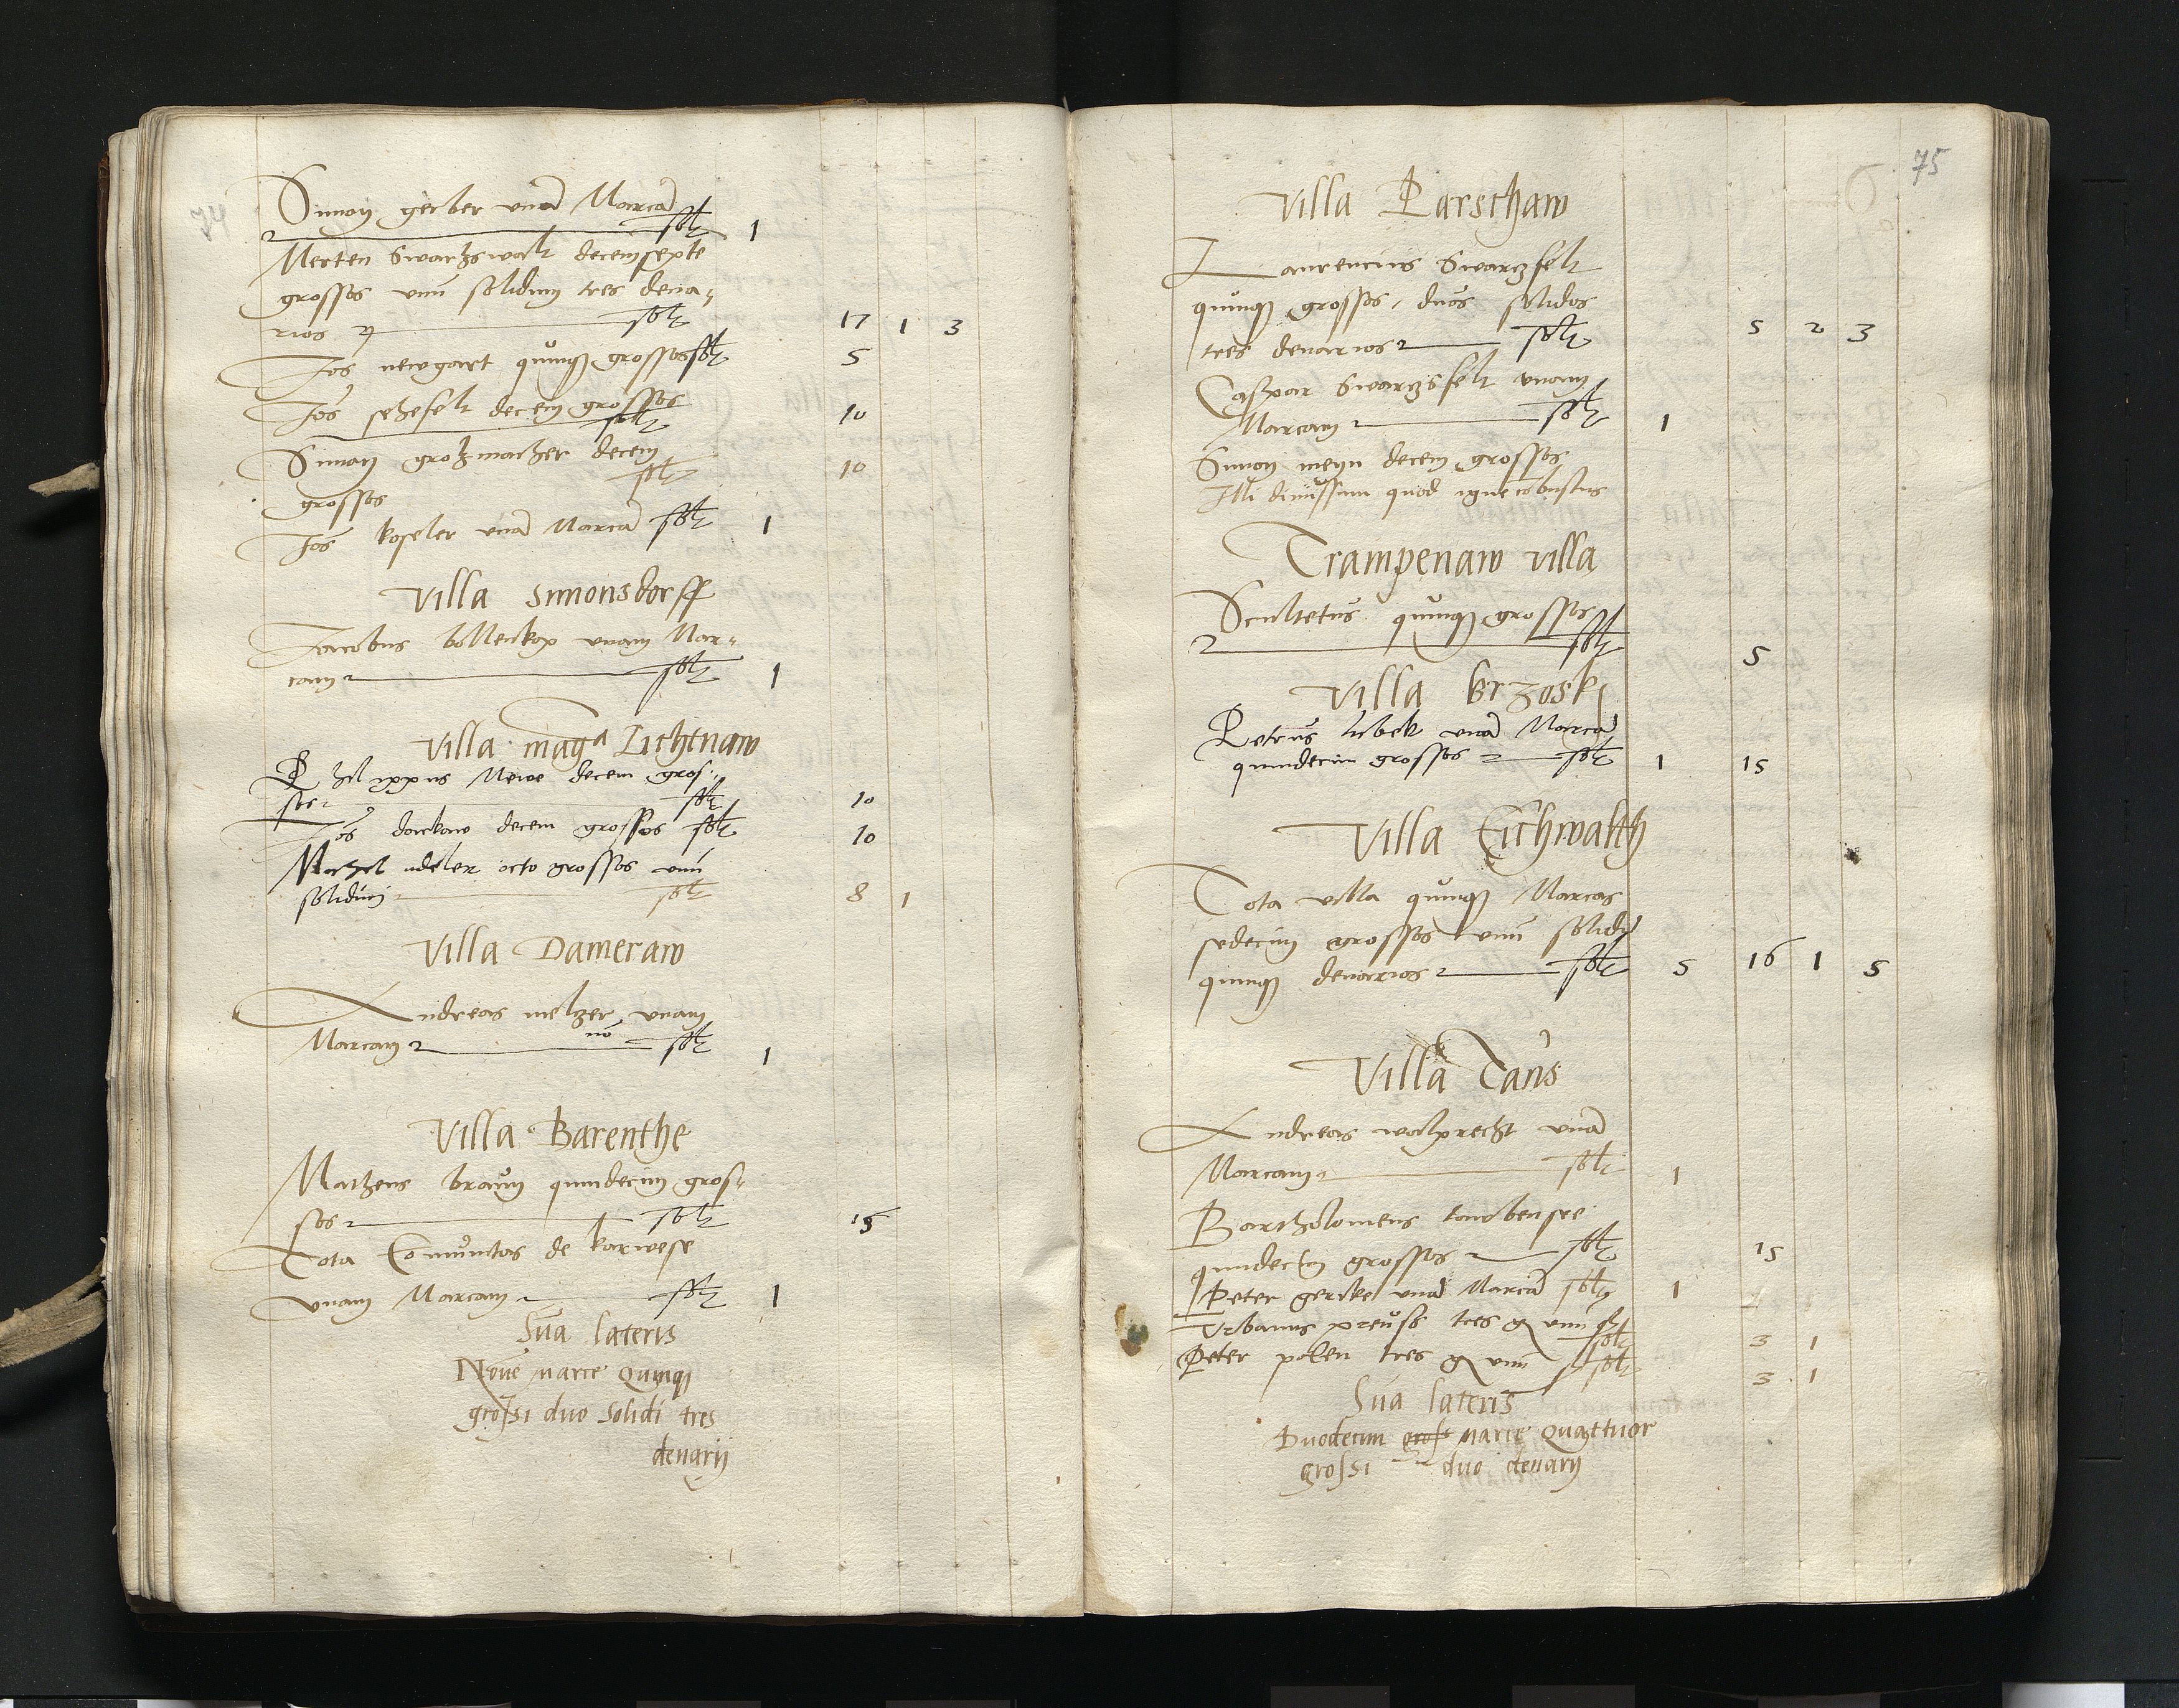 Simon gerber unā Marcā
solt 1
Merten Swarhswalt decemsepte
grossos unū solidum tres dena-
rios solt 17 1 3
Jos newgart quinq grossos solt 5
Jos sehefelt decem grossos
solt 10
Simon grotzmacher decem
solt 10
grossos
Jos koseler unā Marcā solt 1
Villa Simonsdorff
Jacobus bollenkop unam Mar-
cam solt 1
Villa magᵃ Lichtnaw
Philippus Newe decem gros-
sos solt 10
Jos danckow decem grossos solt 10
Michel adeler octo grossos unū
solidum solt 8 1
Villa Dameraw
Andreas melzer unam
Marcam nō solt 1
Villa Barenthe
Matheus braun quindecim gros-
sos solt 15
Tota Comunitas de karwese
unam Marcam solt 1
Sūa lateris
Noue marce Quinq
grossi duo solidi tres
denarij
75
Villa Parschaw
Laurencius Swarzfelt
quinq grossos, duos solidos
tres denarios solt 5 2 3
Caspar Swarzsfelt unam
Marcam solt 1
Simon meyn decem grossos
Illi dimissum quod igne cōbustus
Trampenaw villa
Scultetus quinq grossos
solt 5
Villa brzoski
Petrus lubek unā Marcā
quindecim grossos solt 1 15
Villa Eichwalth
Tota villa quinq Marcas
sedecim grossos unū solidū
quinq denarios solt 5 16 1 5
Villa Tans
Andreas walprecht unā
Marcam solt 1
Bartholomeus taubensee
quindecim grossos solt 15
Peter gericke unā Marcā solt 1
Urbanus preuss tres g unū s
solt 3 1
Peter polen tres g unū s solt 3 1
Sūa lateris
Duodecim gross marce Quattuor
grossi duo denarij